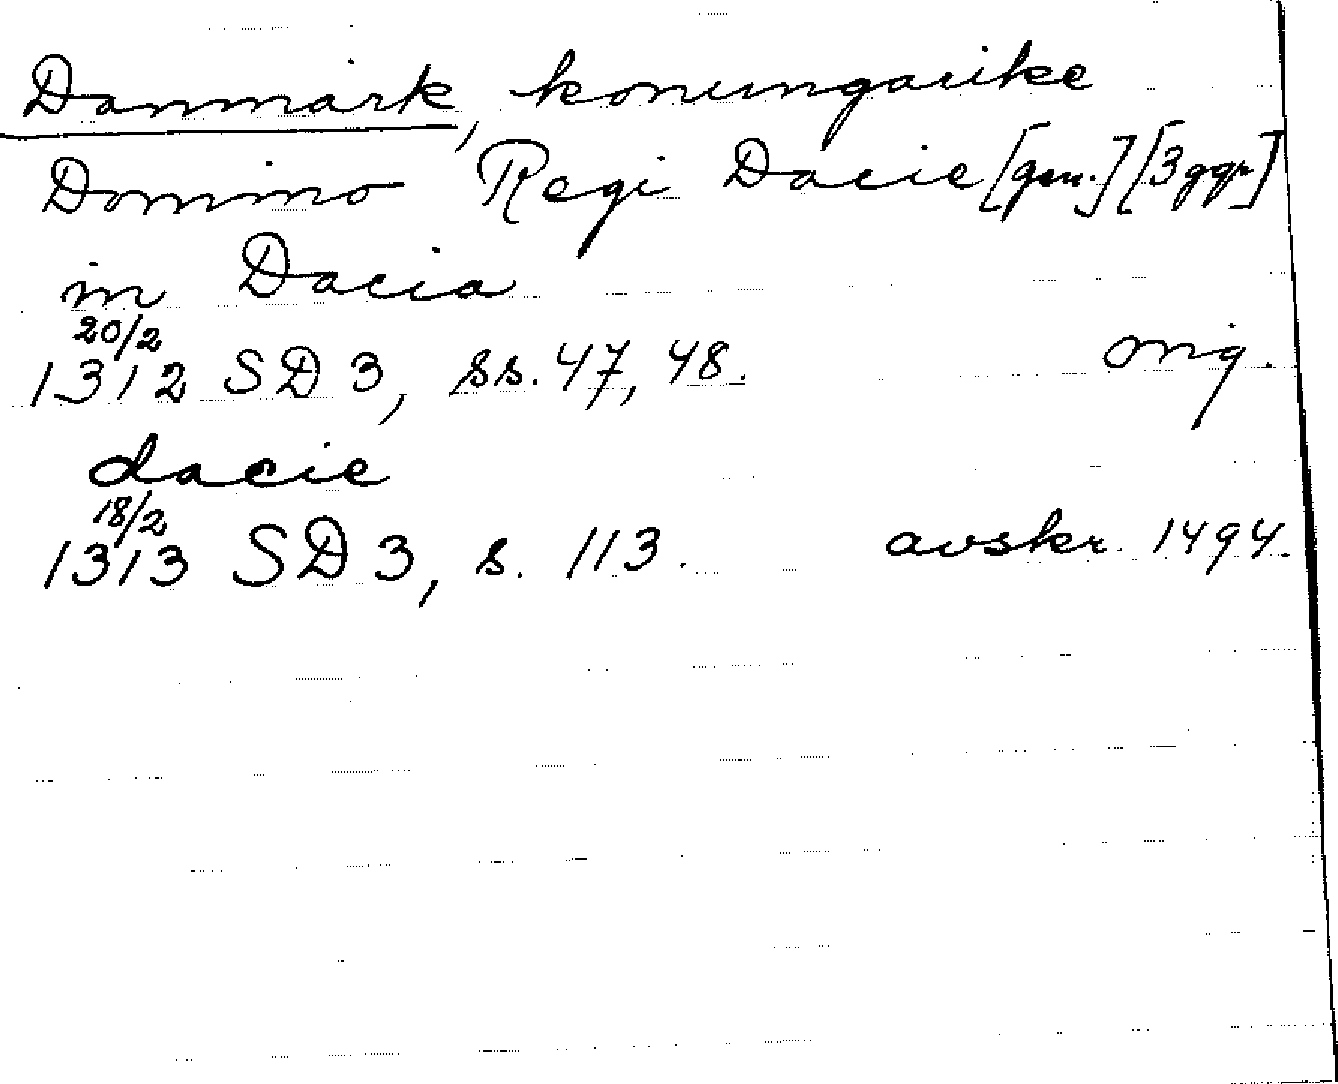 Danmark, konungarike
Domino Regi Dacie [gen.] [3 ggr]
in Dacia
20/2
1312 SD 3, ss. 47, 48. orig.
dacie
18/2
1313 SD 3, s. 113. avskr. 1494.